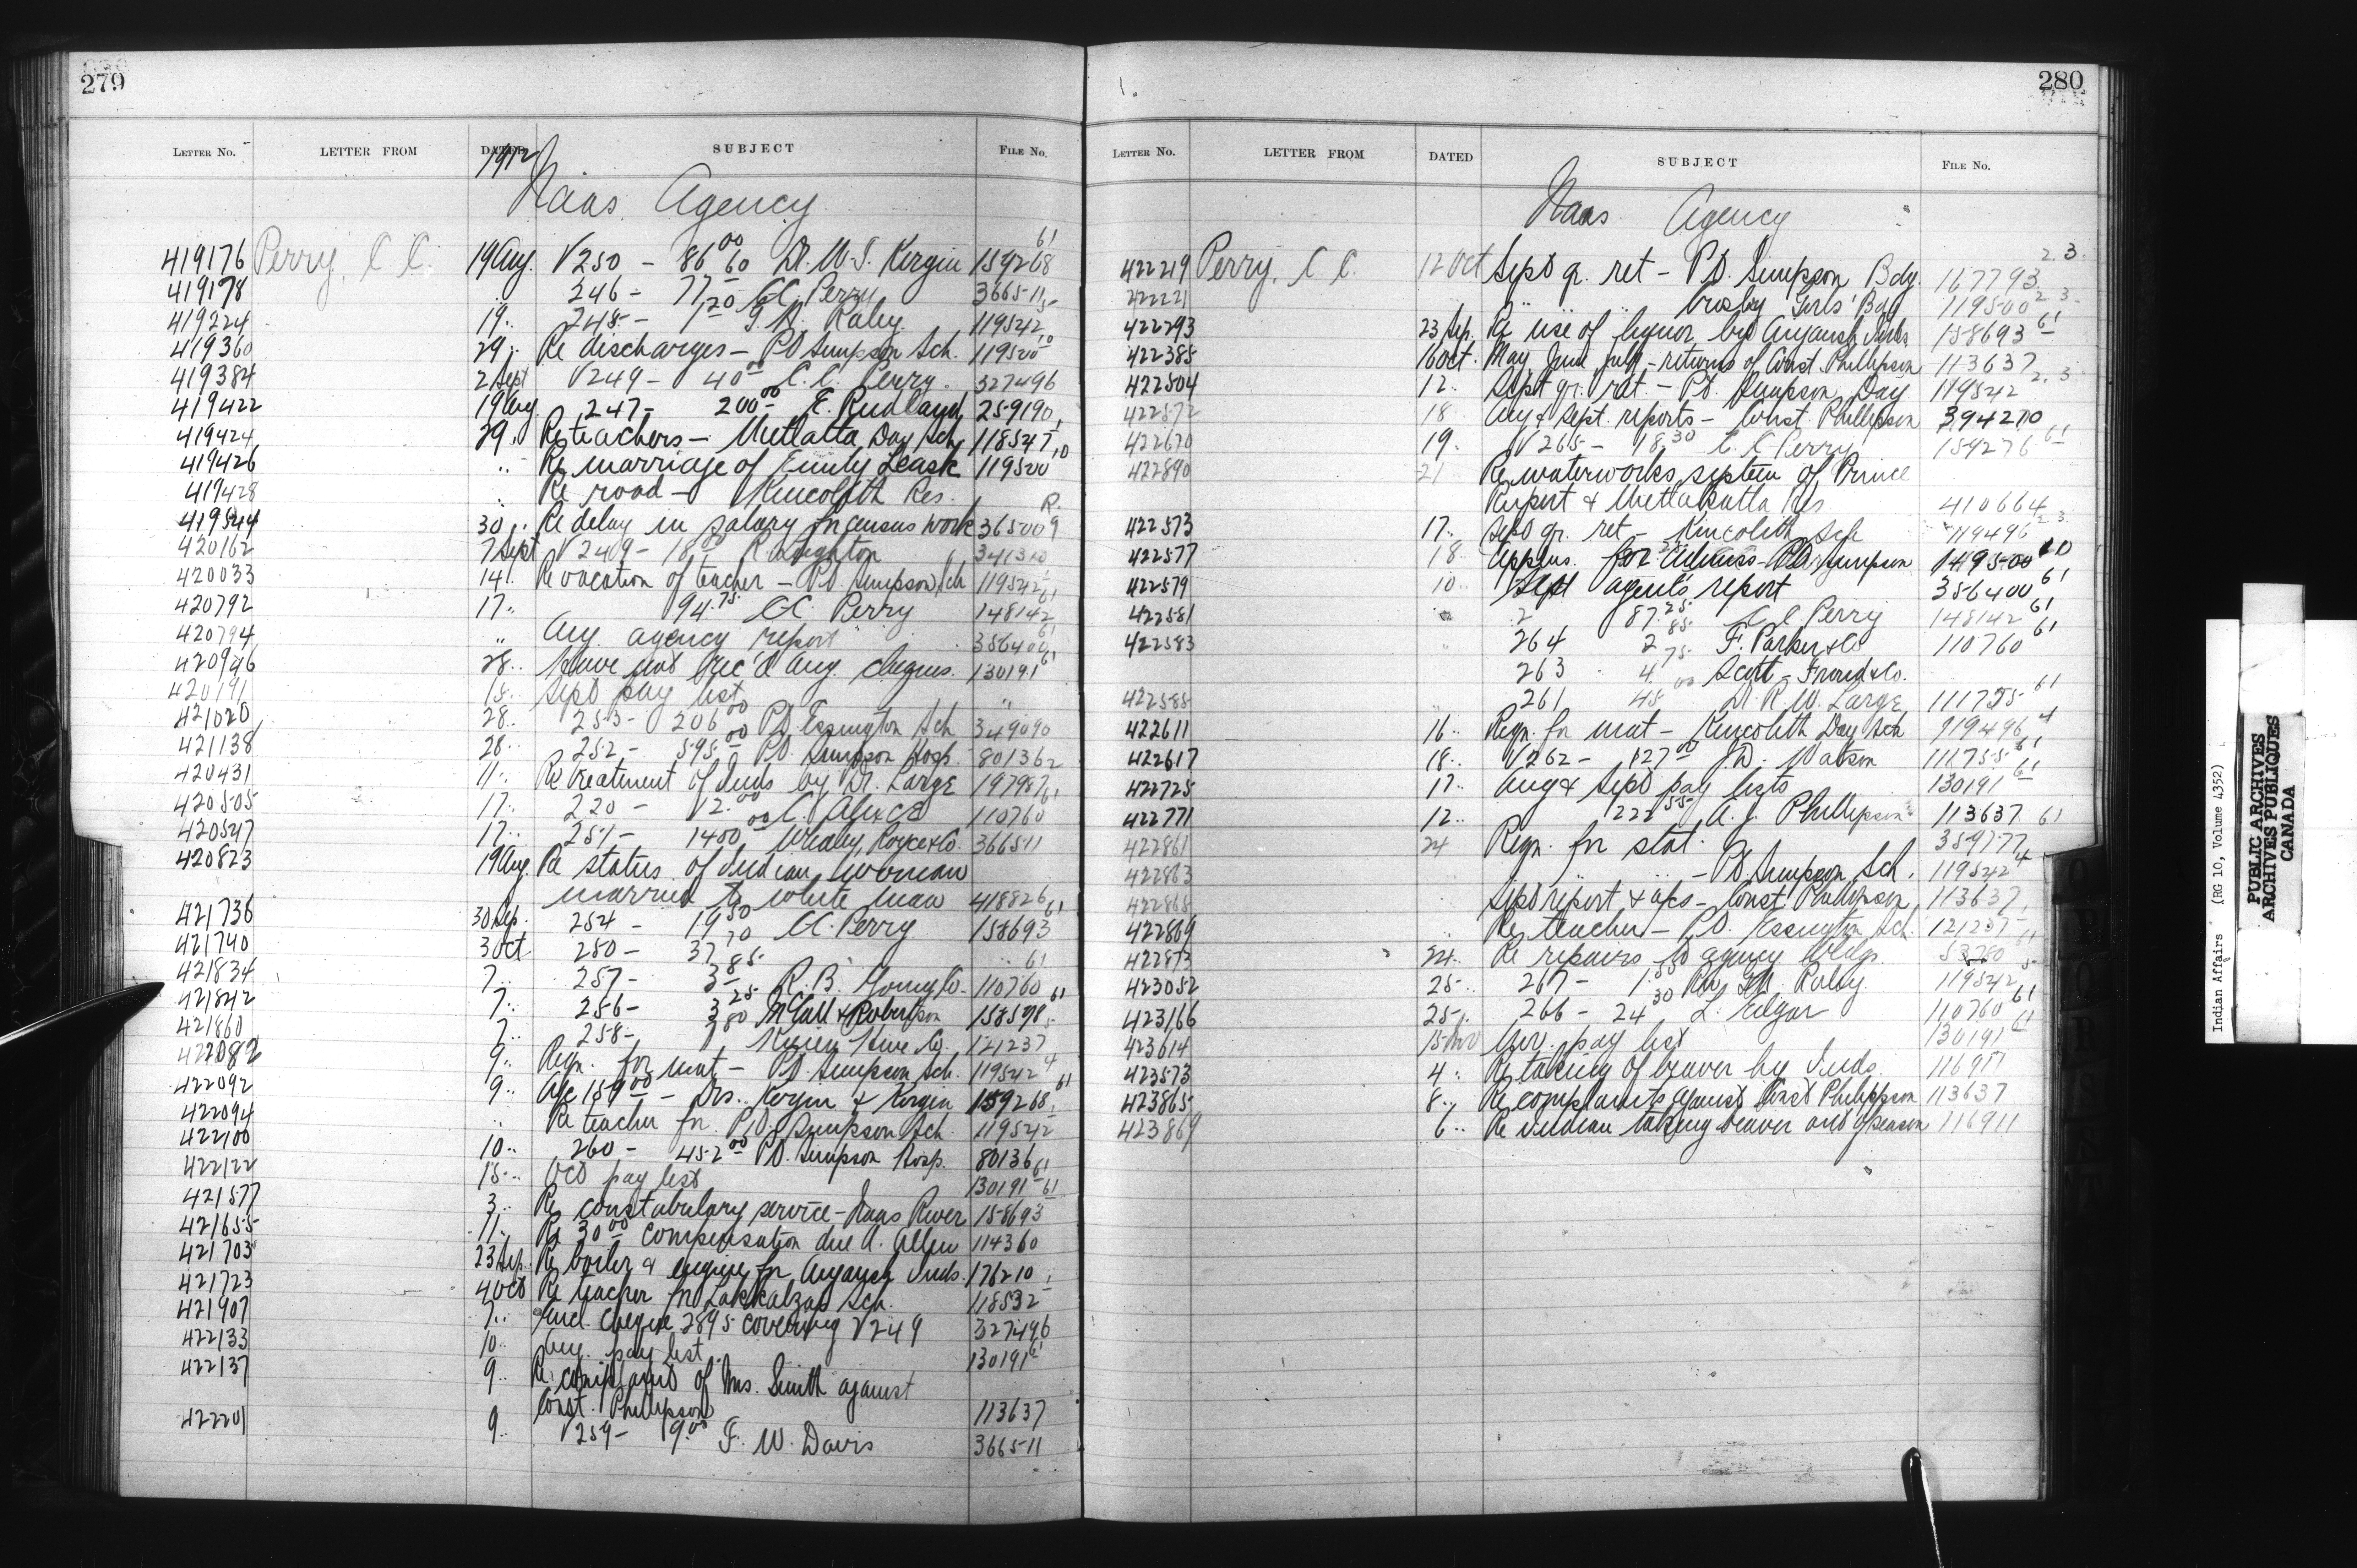 279
LETTER NO. LETTER FROM DATED SUBJECT FILE NO.
1912
Naas Agency
419176 Perry, C. C. 19 Aug. V250 - 86 00 60 Dr. W. S. Kergin 159268 61
419178 246 - 77.20 C.C. Perry 366511
419224 19 .. 248 - 1 G. H. Raley 119542 5
419360 29 .. Re discharges - Pt Simpson Sch. 119500 10
419384 2 Sept V249 - 40 00 C. C. Perry. 327496
419422 19 Aug 247 - 200 00 E. Rudland 259190
419424 29 .. Re teachers - Metlatla Day Sch 118547
419426 .. Re marriage of Emily Leask 119500 10
419428 .. Re road - Kincolith Res.
419544 30 .. Re delay in salary for census work 365009 R.
420162 7 Sept V249 - 18 R. Leighton 341310
420033 14 .. Re vacation of teacher - Pt. Simpson Sch 119542
420792 17 .. 94.75 C.C. Perry 148142 61
420794 .. Aug. agency report 356400 61
420946 28 .. Have not rec'd Aug. cheques. 130191 61
420191 18 .. Sept pay list ..
421020 28 .. 253 - 206 00 Pt. Essington Sch 349090
421138 28 .. 252 - 595 00 Pt. Simpson Hosp. 80136 2
420431 11 .. Re treatment of Inds by Dr. Large 197987
420505 17 .. 220 - 12.00 C. 110760 61
420547 17 .. 251 - 1400 00 Whaley, Royce & Co. 366511
420823 19 Aug. Re status of Indian woman
married to white man 418826
421736 30 Sep. 254 - 19 50 C.C. Perry 158693 61
421740 3 Oct 250 - 37 70
421834 7 .. 257 - 3 85 R. B. 110760 61
421842 7 .. 256 - 3 25 McCall & Robertson 158598 61
421860 7 .. 258 - 1 80 121237 5
422082 9 .. Reqn. for mat - Pt. Simpson Sch. 119542 4
422092 9 .. A/c 159 00 - Drs. Kergin & Kergin 159268 61
422094 .. Re teacher for Pt. Simpson Sch 119542
422100 10 .. 260 - 452 00 Pt. Simpson Hosp. 80136
422122 15 .. Oct pay list 130191 61
421577 3 .. Re constabulary service - Naas River 158693 61
421655 11 .. Re 30 00 compensation due A. Allen 114360
421703 23 Sep. Re boiler & engine for Aiyansh Inds. 176210
421723 4 Oct Re teacher for Lakkalzap Sch. 118532
421907 7 .. Incl. cheque 2895 covering V249 327496
422133 10 .. Aug. pay list 130191 61
422137 9 .. Re complaint of Mrs. Smith against
Const. Phillipson 113637
422201 9 .. V259 - 19.00 F. W. Davis 366511
280
LETTER NO. LETTER FROM DATED SUBJECT FILE NO.
Naas Agency
422219 Perry, C C. 12 Oct Sept qr. ret - Pt. Simpson Bdg. 167793 2.3.
422221 .. .. .. Crosby Girls' Bdg 119500 2 3
422293 23 Sep. Re use of liquor by Aiyansh Inds 158693 61
422385 16 Oct. May June July - returns of Const. Phillipson 113637
422504 12 .. Sept qr. ret. - Pt. Simpson Day 119542 2.3
422572 18 .. Aug & Sept. reports - Const. Phillipson 394210
422670 19 .. V265 - 18.30 C. C Perry 159276 61
422890 21 Re waterworks system of Prince
Rupert & Metlakatla Res 410664
422573 17 .. Sept qr. ret - Kincolith Sch 119496 2 3
422577 18 .. Applns. for admiss - Pt Simpson 149500 10
422579 10 .. Sept agent's report 356400 61
422581 2 87.25 C C Perry 148142 61
422583 264 2 85 F. Parker & Co 110760 61
263 4 75 Scott - Froud & Co.
422585 261 45 00 Dr. R. W. Large 111755 61
422611 16 .. Reqn. for mat - Kincolith Day Sch 119496 4
422617 18 .. V262 - 127 00 J. D. Watson 111755 61
422725 17 .. Aug & Sept pay lists 130191 61
422771 12 .. 122 55 A. J. Phillipson 113637 61
422861 24 Reqn. for stat. 359177
422863 .. .. - Pt. Simpson Sch. 119542 4
422865 Sept report & a/cs - Const. Phillipson 113637
422869 .. Re teacher - Pt. Essington Sch. 121237
422873 24 .. Re repairs to agency bldgs 53780 61
423052 25 .. 267 - 1.50 Rev. G.H. Raley 119542 5
423166 25 .. 266 - 24 30 L. Edgar 110760 61
423614 15 Nov Nov. pay list 130191 61
423573 4 .. Re taking of beaver by Inds. 116911
423865 8 .. Re complaints against Const Phillipson 113637
423869 6 .. Re Indian taking beaver out of season 116911
Indian Affairs (RG 10, Volume 4352)
PUBLIC ARCHIVES
ARCHIVES PUBLIQUES
CANADA